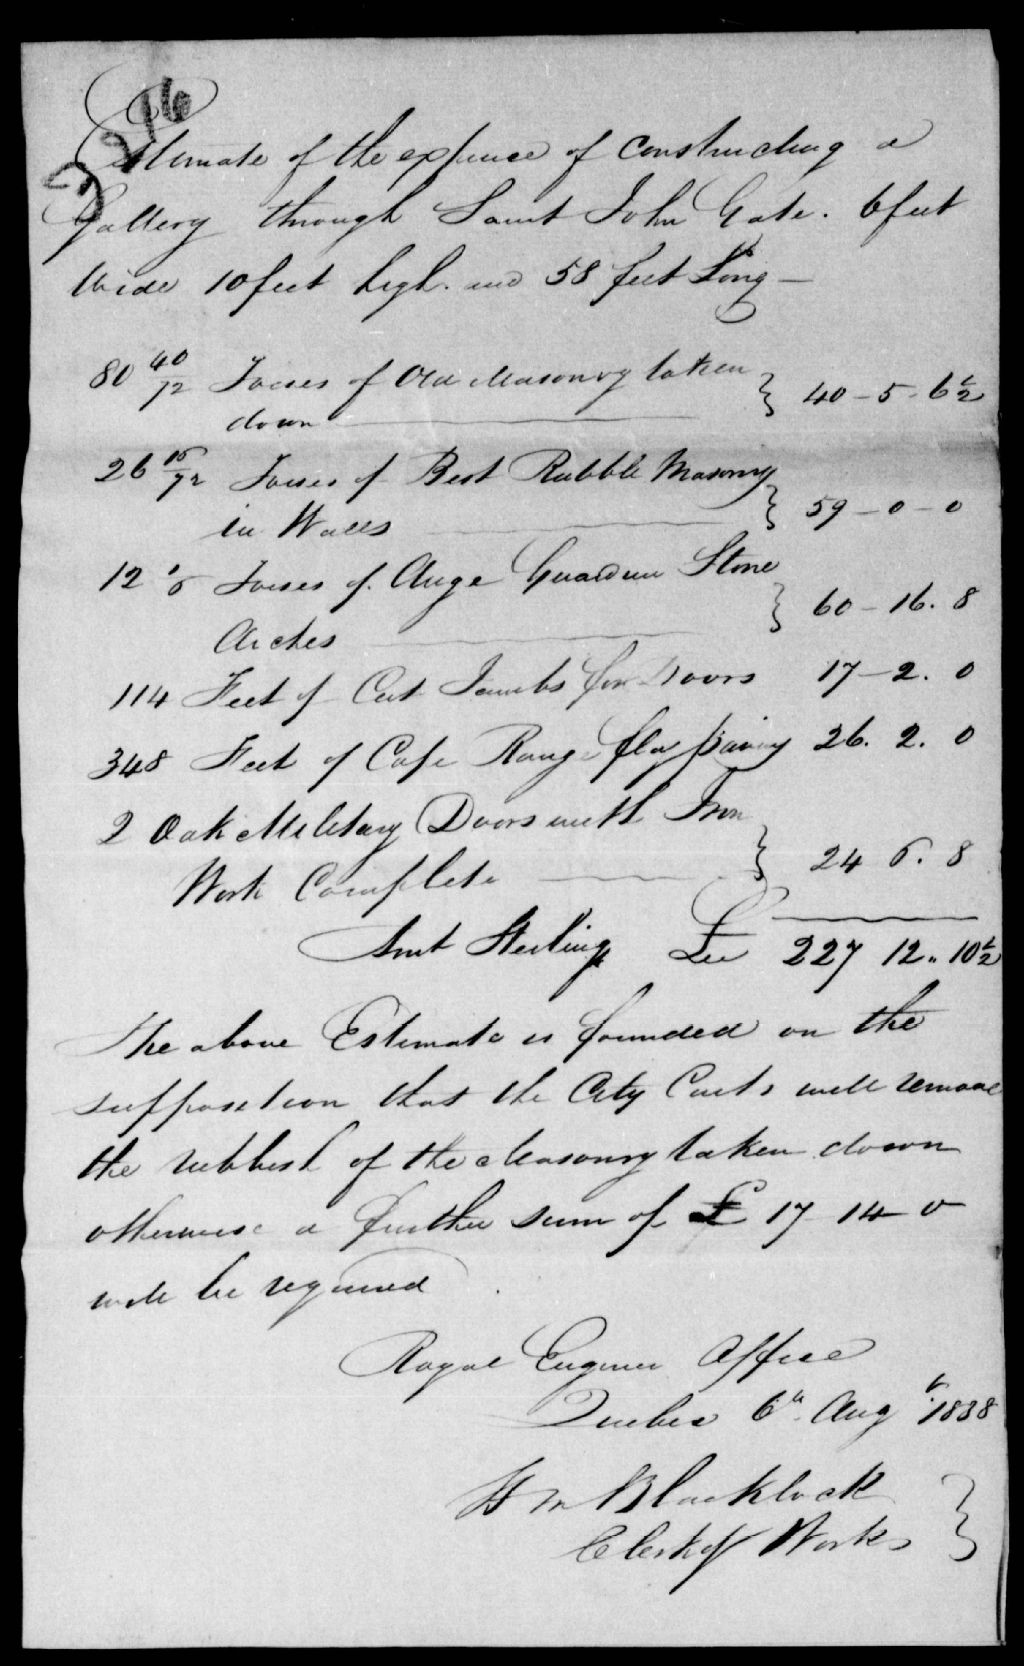 216
Estimate of the expence of constructing a
Gallery through Saint John Gate. 6 feet
Wide 10 feet high. and 58 feet Long —
80 40/72 Toises of Old Masonry taken
down } 40 - 5 - 6 1/2
26 16/72 Toises of Best Rubble Masonry
in Walls } 59 - 0 - 0
12 1/6 Toises of Ange Guardien Stone
Arches } 60 - 16. 8
114 Feet of Cut Jambs for Doors 17 - 2. 0
348 Feet of Cape Rouge flag paving 26. 2. 0
2 Oak Military Doors with Iron
Work Complete } 24 6. 8
Amt Sterling £ 227 12 " 10 1/2
The above Estimate is founded on the
supposition that the City Carts will remove
the rubbish of the Masonry taken down
otherwise a further sum of £ 17 - 14 - 0
will be required
Royal Engineer Office
Quebec 6th Augt 1838
Wm Blacklock
Clerk of Works }